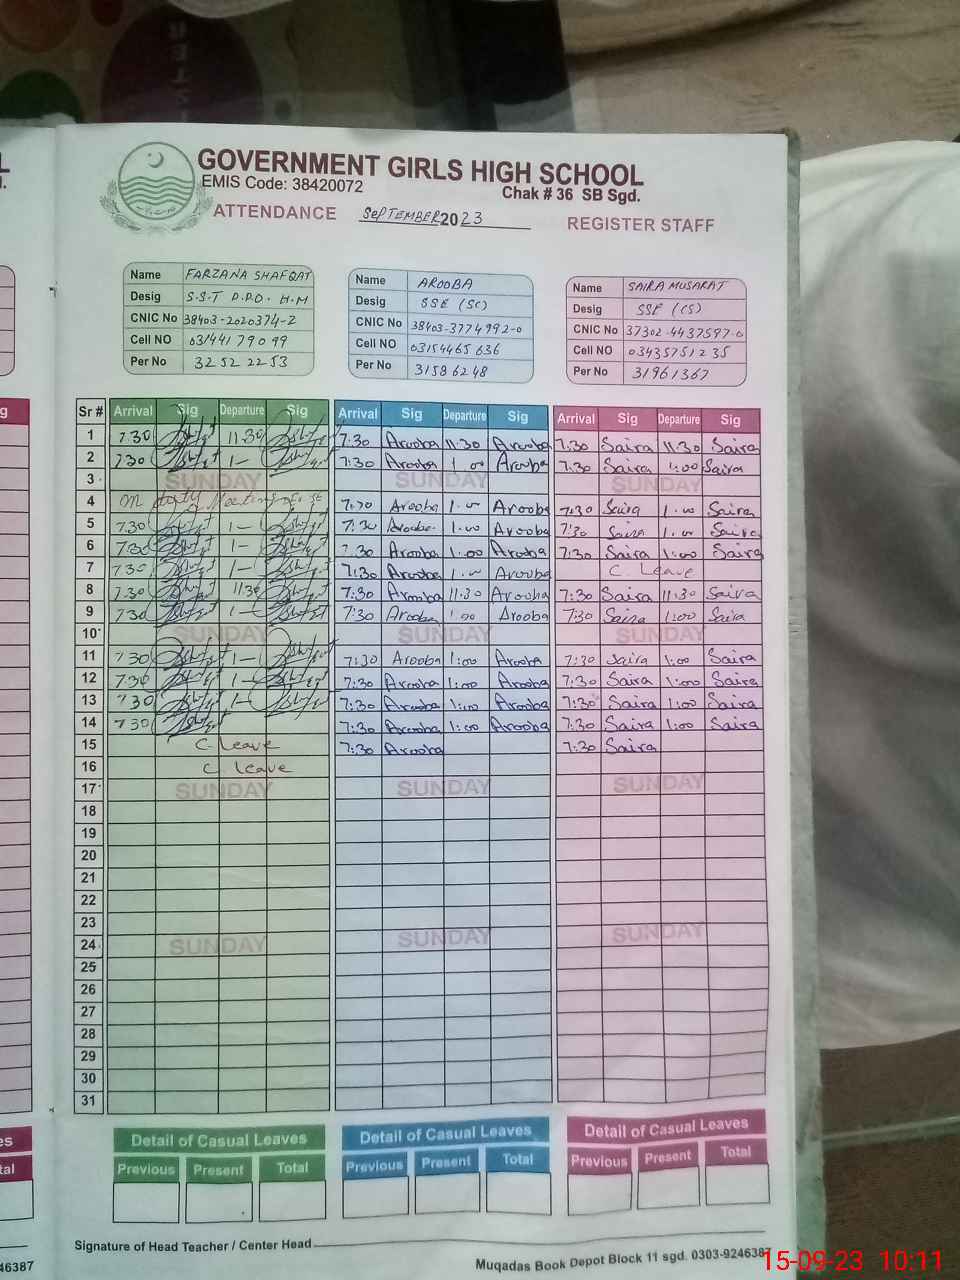 GOVERNMENT GIRLS HIGH SCHOOL
EMIS Code: 38420072
Chak # 36 SB Sgd.
ATTENDANCE SEPTEMBER 2023 REGISTER STAFF
Name FARZANA SHAFQAT
Desig S.S.T D.D.O. H.M
CNIC No 38403-2020374-2
Cell NO 03144179099
Per No 32522253
Name AROOBA
Desig SSE (SC)
CNIC No 38403-3774992-0
Cell NO 03154465636
Per No 31586248
Name SAIRA MUSARAT
Desig SSE (CS)
CNIC No 37302-4437597-0
Cell NO 03435751235
Per No 31961367
Sr # Arrival Sig Departure Sig Arrival Sig Departure Sig Arrival Sig Departure Sig
1 7.30 11.30 7:30 Arooba 11:30 Arooba 7:30 Saira 11:30 Saira
2 7.30 1- 7:30 Arooba 1.00 Arooba 7:30 Saira 1:00 Saira
3 SUNDAY SUNDAY SUNDAY
4 on duty Meeting 7:30 Arooba 1.00 Arooba 7:30 Saira 1.00 Saira
5 7.30 1- 7:30 Arooba 1.00 Arooba 7:30 Saira 1.00 Saira
6 7:30 1- 7:30 Arooba 1:00 Arooba 7:30 Saira 1:00 Saira
7 7.30 1- 7:30 Arooba 1.00 Arooba C. Leave
8 7.30 11.30 7:30 Arooba 11:30 Arooba 7:30 Saira 11:30 Saira
9 7.30 1- 7:30 Arooba 1:00 Arooba 7:30 Saira 1:00 Saira
10 SUNDAY SUNDAY SUNDAY
11 7 30 1- 7:30 Arooba 1:00 Arooba 7:30 Saira 1:00 Saira
12 7.30 1- 7:30 Arooba 1:00 Arooba 7:30 Saira 1:00 Saira
13 7 30 1- 7:30 Arooba 1:00 Arooba 7:30 Saira 1:00 Saira
14 7.30 7:30 Arooba 1:00 Arooba 7:30 Saira 1:00 Saira
15 C. Leave 7:30 Arooba 7:30 Saira
16 C. Leave
17 SUNDAY SUNDAY SUNDAY
18
19
20
21
22
23
24 SUNDAY SUNDAY SUNDAY
25
26
27
28
29
30
31
Detail of Casual Leaves Detail of Casual Leaves Detail of Casual Leaves
Previous Present Total Previous Present Total Previous Present Total
Signature of Head Teacher / Center Head
46387 Muqadas Book Depot Block 11 sgd. 0303-9246387
15-09-23 10:11